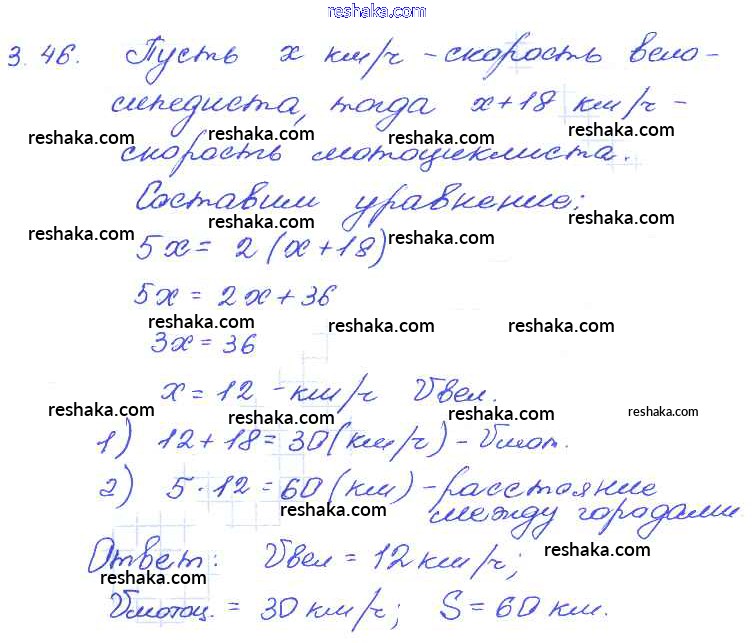 reshaka.com
3.46. Пусть x км/ч - скорость вело-
сипедиста, тогда x+18 км/ч -
reshaka.com reshaka.com reshaka.com reshaka.com
скорость мотоциклиста.
Составим уравнение:
reshaka.com reshaka.com reshaka.com reshaka.com
5x = 2(x+18)
5x = 2x+36
reshaka.com reshaka.com reshaka.com
3x = 36
x = 12 - км/ч Vвел.
reshaka.com reshaka.com reshaka.com reshaka.com
1) 12+18=30(км/ч) - Vмот.
2) 5·12=60(км) - расстояние
между городами
reshaka.com reshaka.com reshaka.com
Ответ: Vвел = 12км/ч;
reshaka.com reshaka.com reshaka.com
Vмотоц. = 30км/ч; S = 60 км.